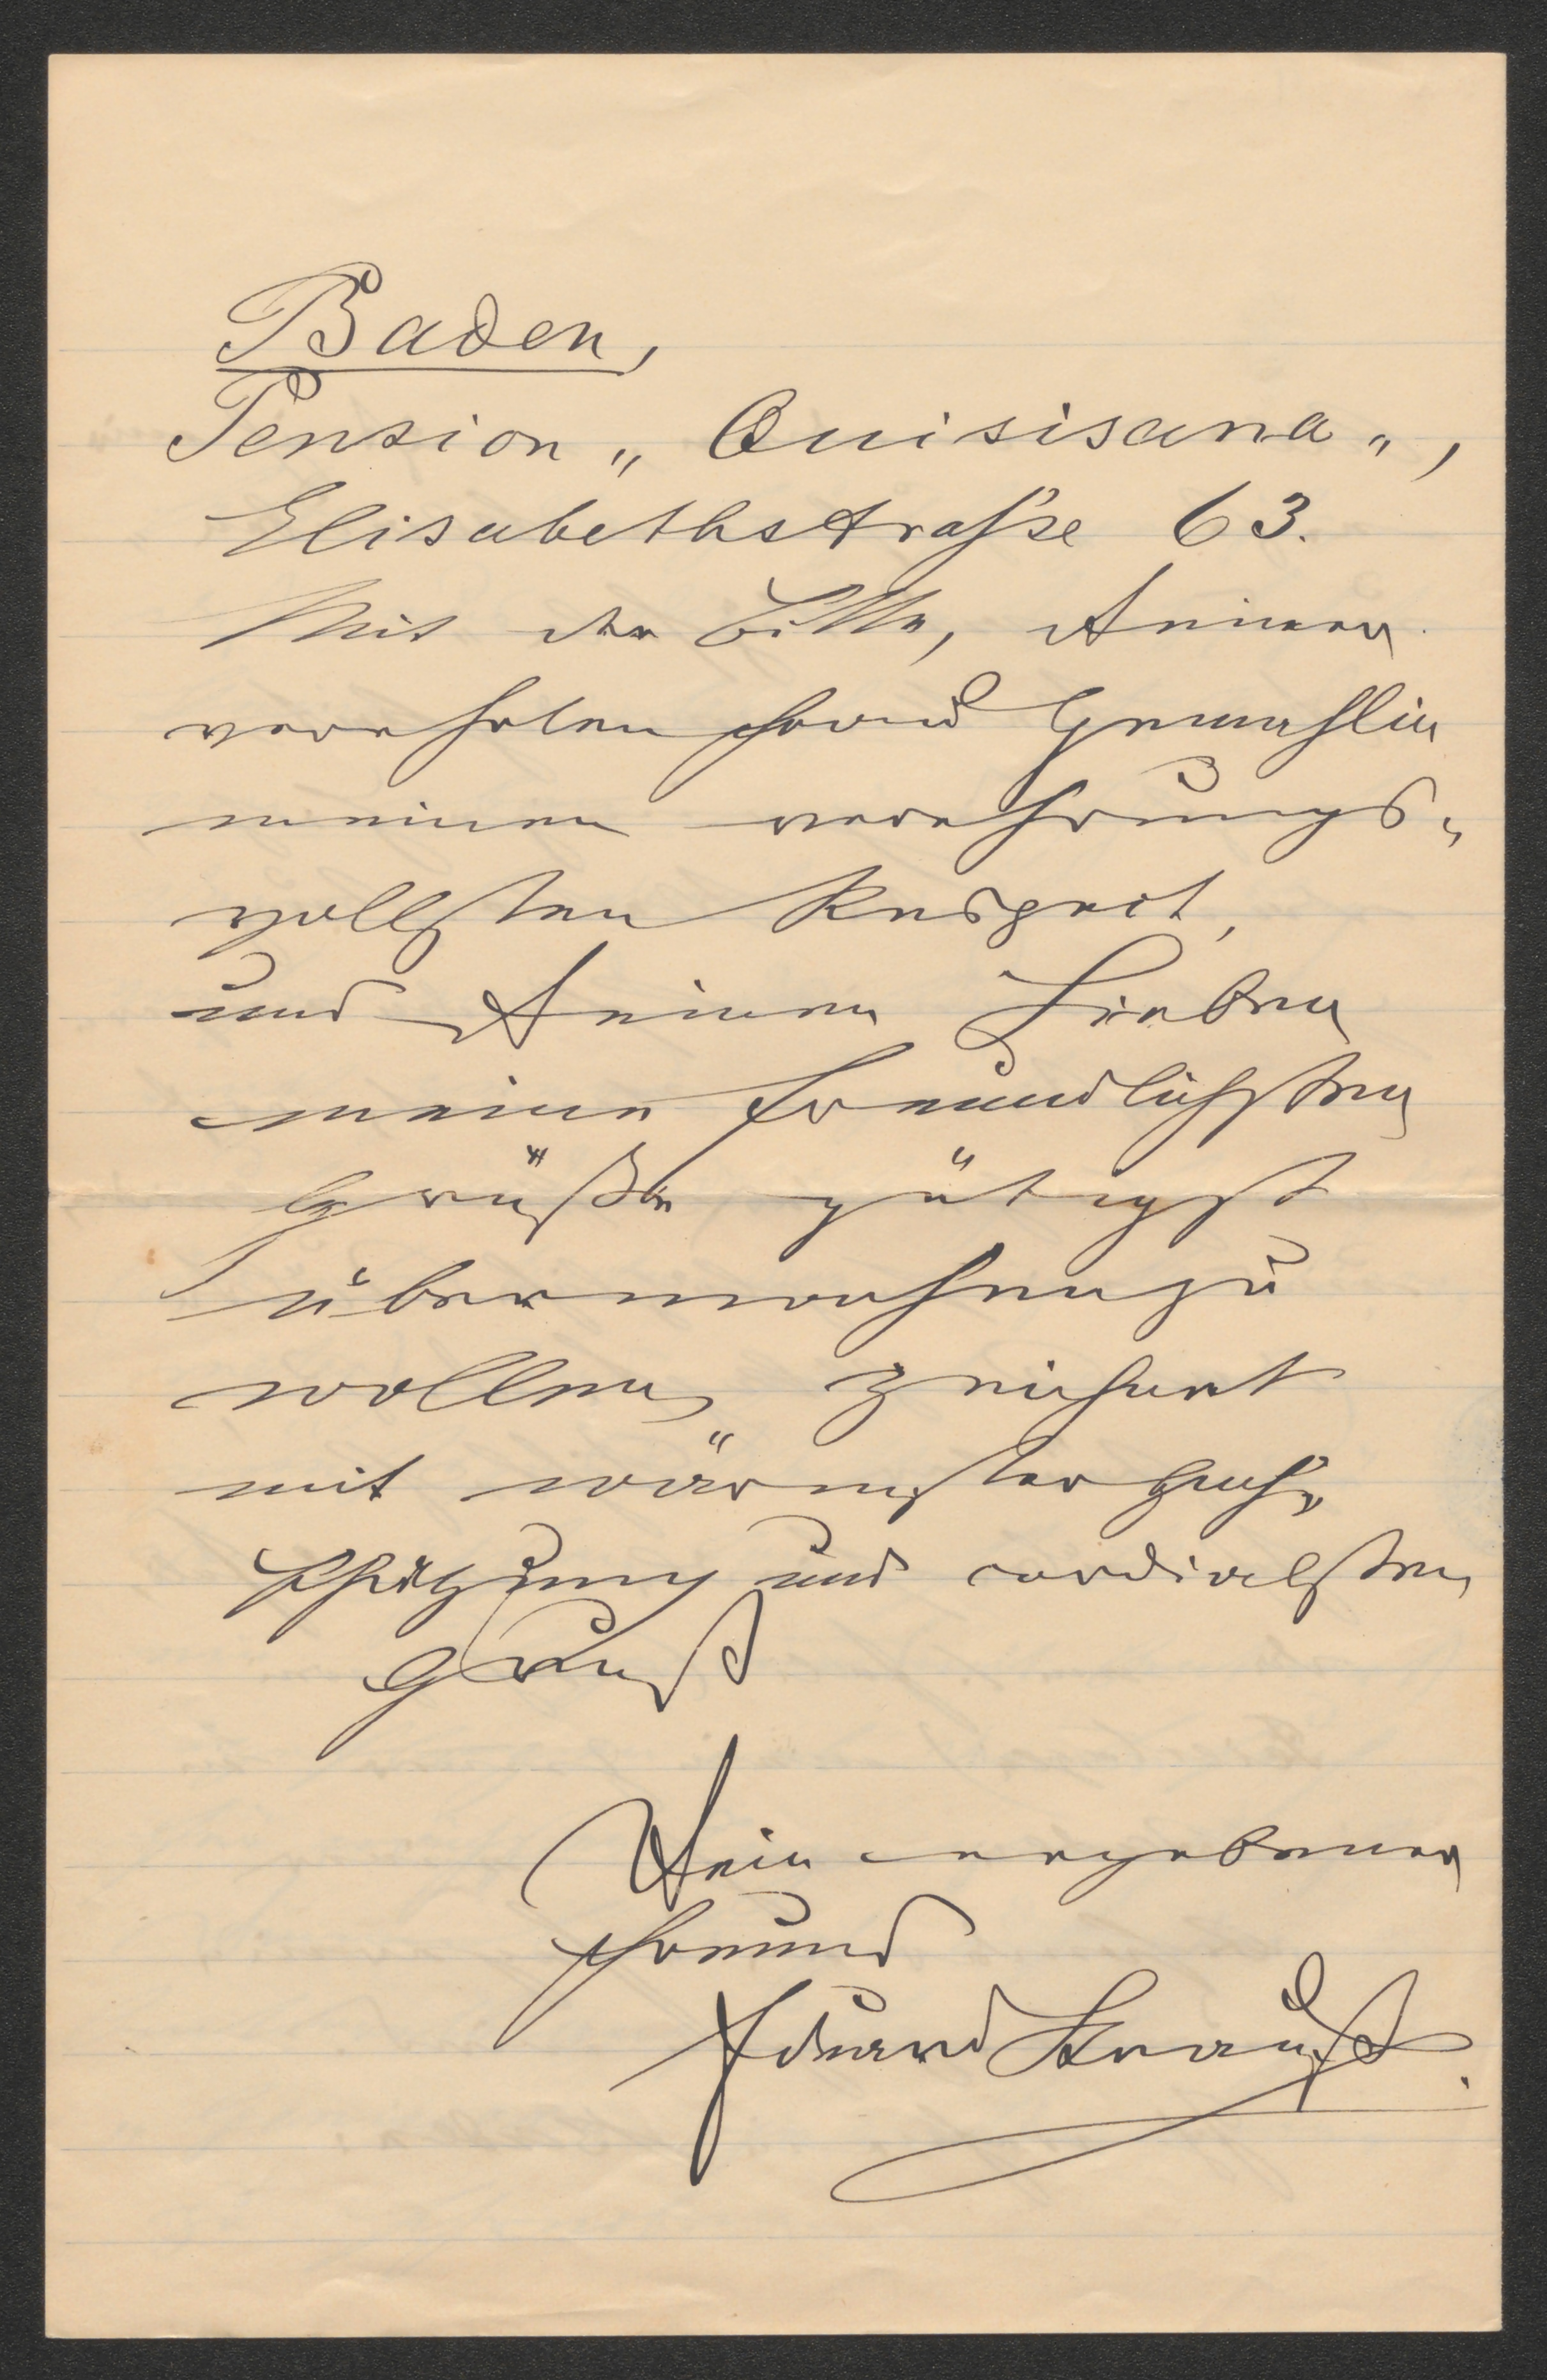 Baden,
Pension „Quisisana",
Elisabethstraße 63.
Mit der Bitte, Deiner
verehrten Frau Gemahlin
meinen verehrungs-
vollsten Respect,
und Deinen Lieben
meine freundlichsten
Grüße gütigst
übermachen zu
wollen, zeichnet
mit wärmster Hoch-
schätzung und cordialsten
Gruß
Dein ergebener
Freund
Eduard